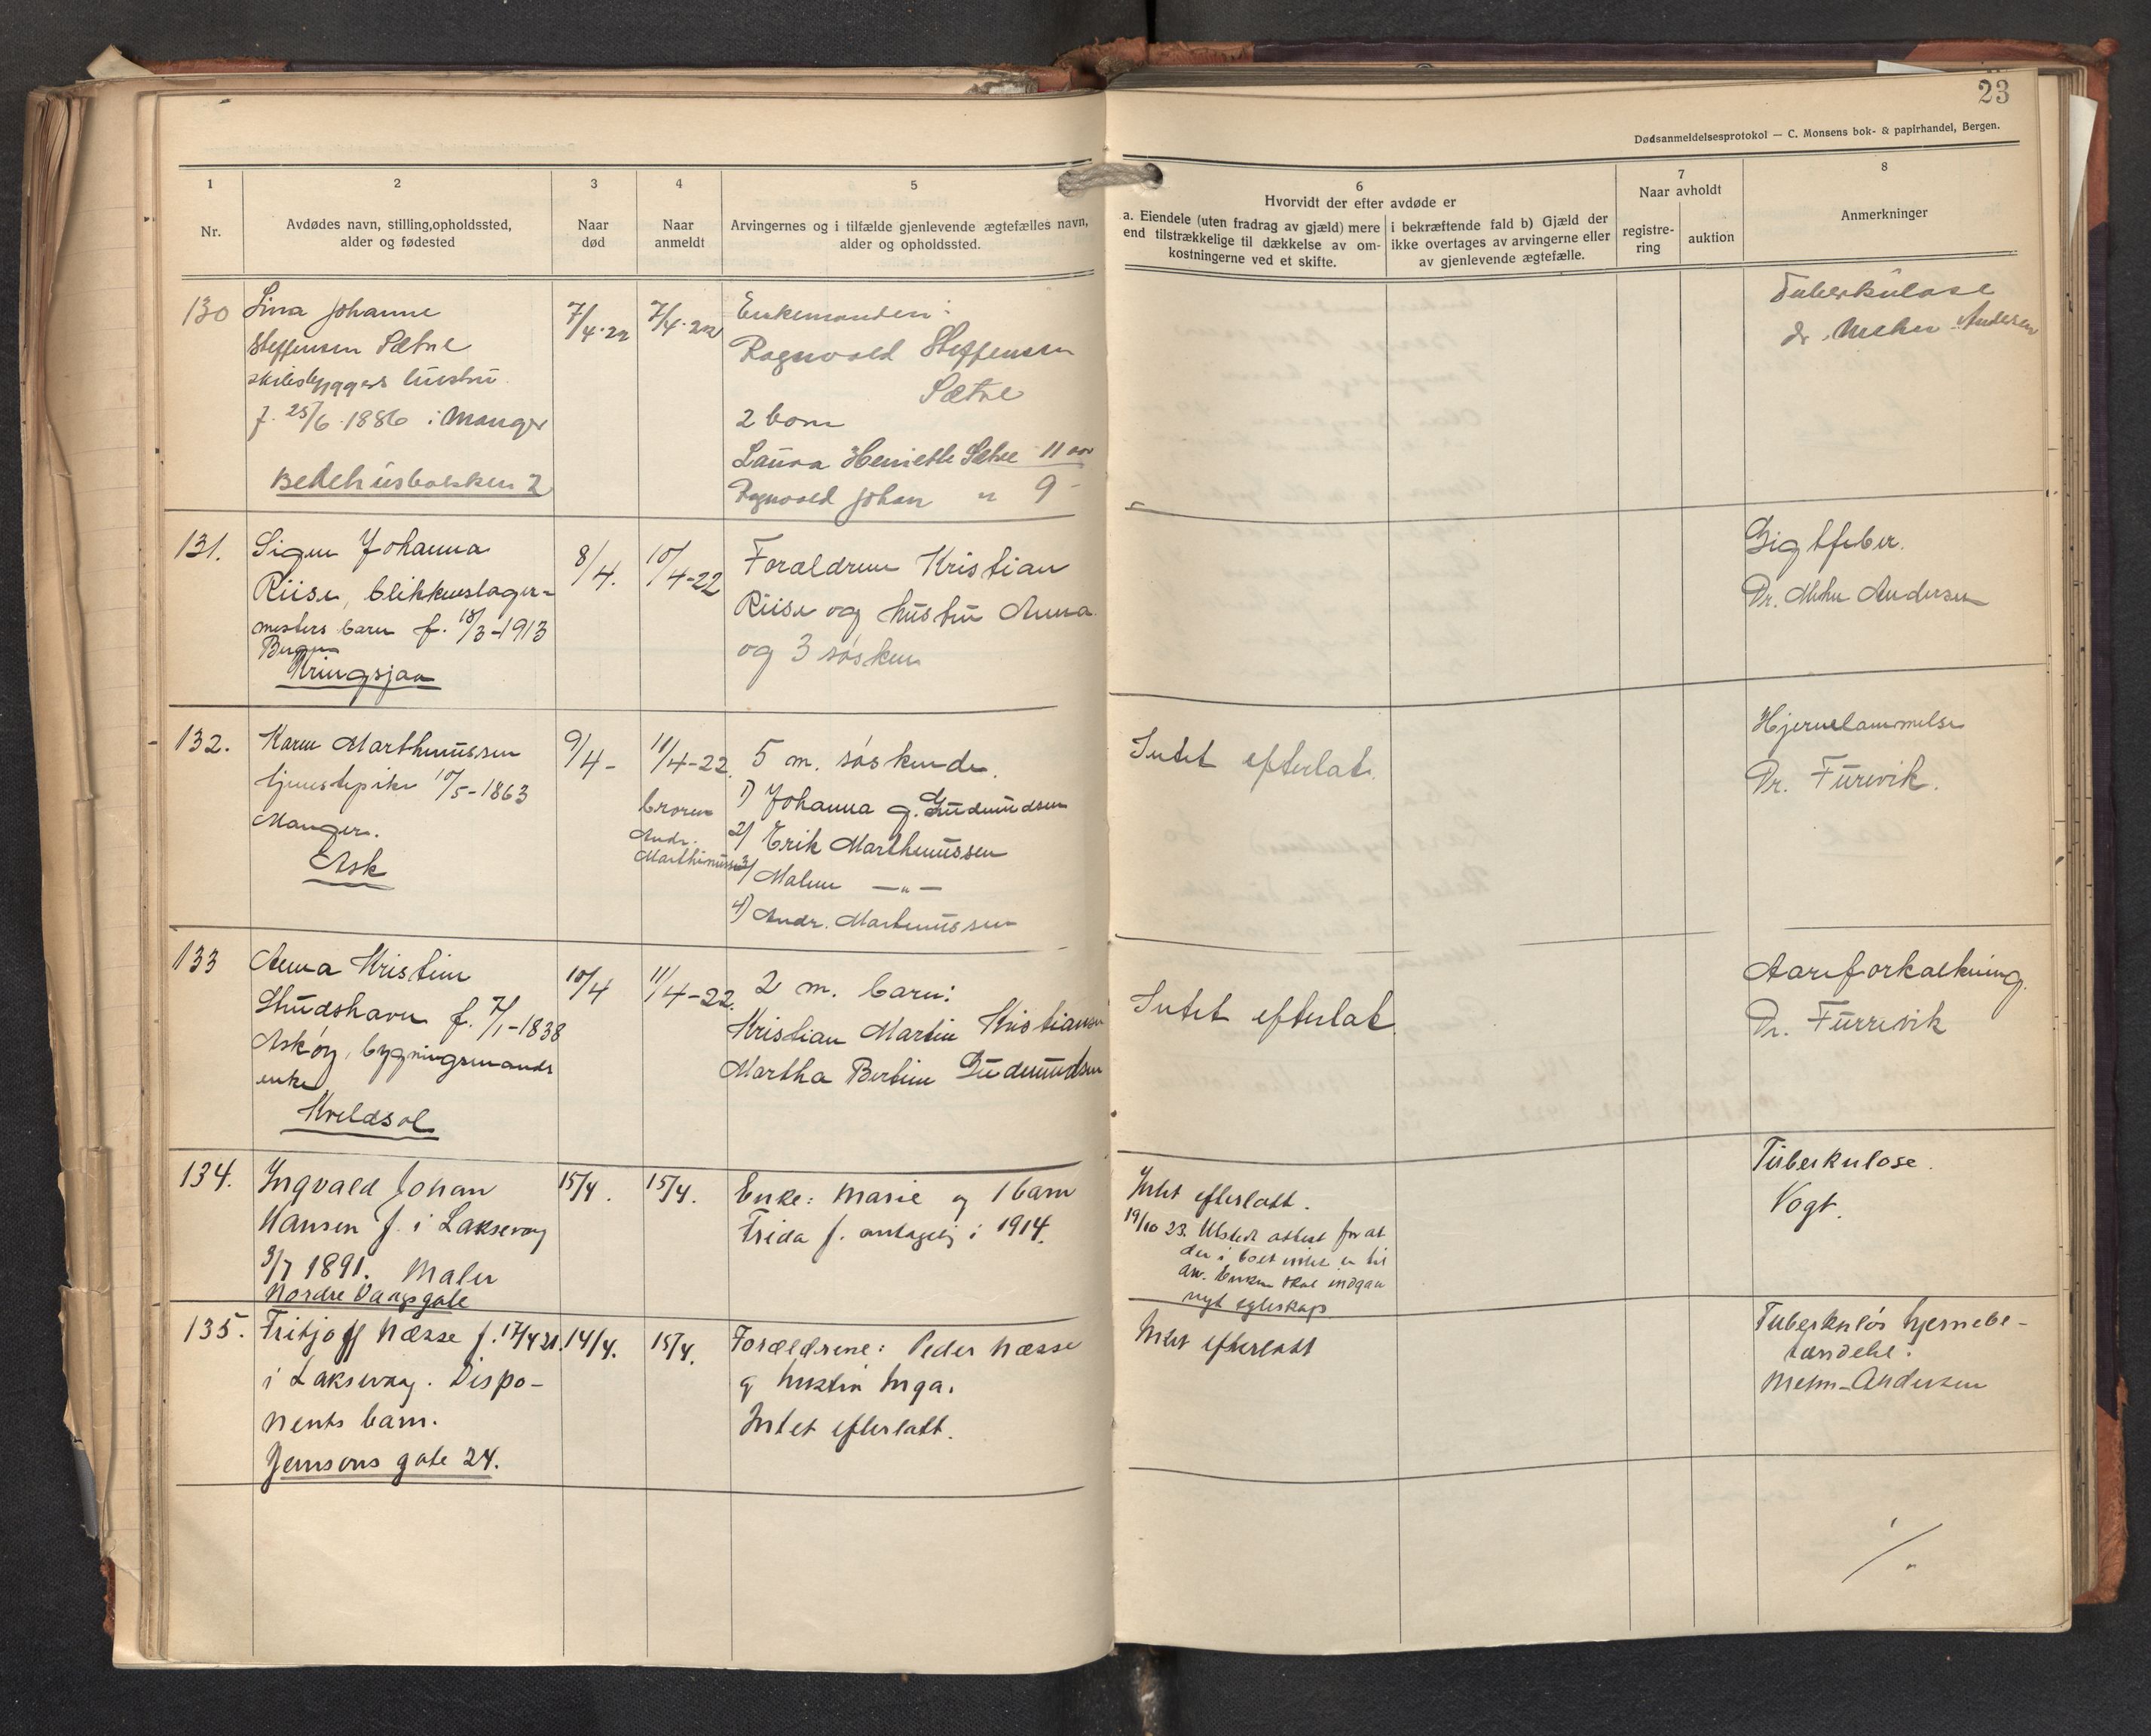 23
Dødsanmeldelsesprotokol — C. Monsens bok- & papirhandel, Bergen.
1
Nr.
2
Avdødes navn, stilling, opholdssted,
alder og fødested
3
Naar
død
4
Naar
anmeldt
5
Arvingernes og i tilfælde gjenlevende ægtefælles navn,
alder og opholdssted.
6
Hvorvidt der efter avdøde er
a. Eiendele (uten fradrag av gjæld) mere
end tilstrækkelige til dækkelse av om-
kostningerne ved et skifte.
i bekræftende fald b) Gjæld der
ikke overtages av arvingerne eller
av gjenlevende ægtefælle.
7
Naar avholdt
registre-
ring
auktion
8
Anmerkninger
130
Lina Johanne
Steffensen Sætre
skibsbyggers hustru
f. 25/6 1886 i Manger
Bedehusbakken 2
7/4-22
7/4-22
Enkemanden:
Ragnvald Steffensen
Sætre
2 barn
Laura Henriette Sætre 11 aar
Ragnvald Johan " 9 -
Tuberkulose
dr. Mehn Andersen
131.
Signe Johanna
Riise, blikkenslager-
mesters barn f. 18/3-1913
Bergen
Kringsjaa
8/4.
10/4-22
Forældrene Kristian
Riise og hustru Anna
og 3 søsken
Gigtfeber.
Dr. Mehn Andersen
132.
Karen Marthinussen
tjenestepike 10/5-1863
Manger.
Ask
9/4-
11/4-22.
broren
Andr.
Marthinussen
5 m. søskende.
1) Johanna g. Gudmundsen
2) Erik Marthinussen
3) Malene —"—
4) Andr. Martinussen
Intet efterlat.
Hjernelammelse
Dr. Furevik.
133
Anna Kristine
Skudshavn f. 7/1-1838
Askøy, bygningsmands
enke
Kveldsol
10/4
11/4-22.
2 m. barn:
Kristian Martin Kristiansen
Martha Bertine Gudmundsen
Intet efterlat
Aareforkalkning.
Dr. Furrevik
134.
Ingvald Johan
Hansen f. i Laksevaag
3/7 1891. Maler
Nordre Vaagsgate
15/4.
15/4.
Enke: Marie og 1 barn
Frida f. antagelig i 1914.
Intet efterlatt.
19/10 23. Utstedt attest for at
der i boet intet er til
arv. Enken skal indgaa
nyt egteskap
Tuberkulose.
Vogt.
135.
Fritjoff Næsse f. 17/4 21.
i Laksevaag. Dispo-
nents barn.
Jensons gate 24.
14/4.
15/4.
Forældrene: Peder Næsse
og hustru Inga.
Intet efterlatt.
Intet efterlatt
Tuberkuløs hjernebe-
tændelse.
Mehn-Andersen